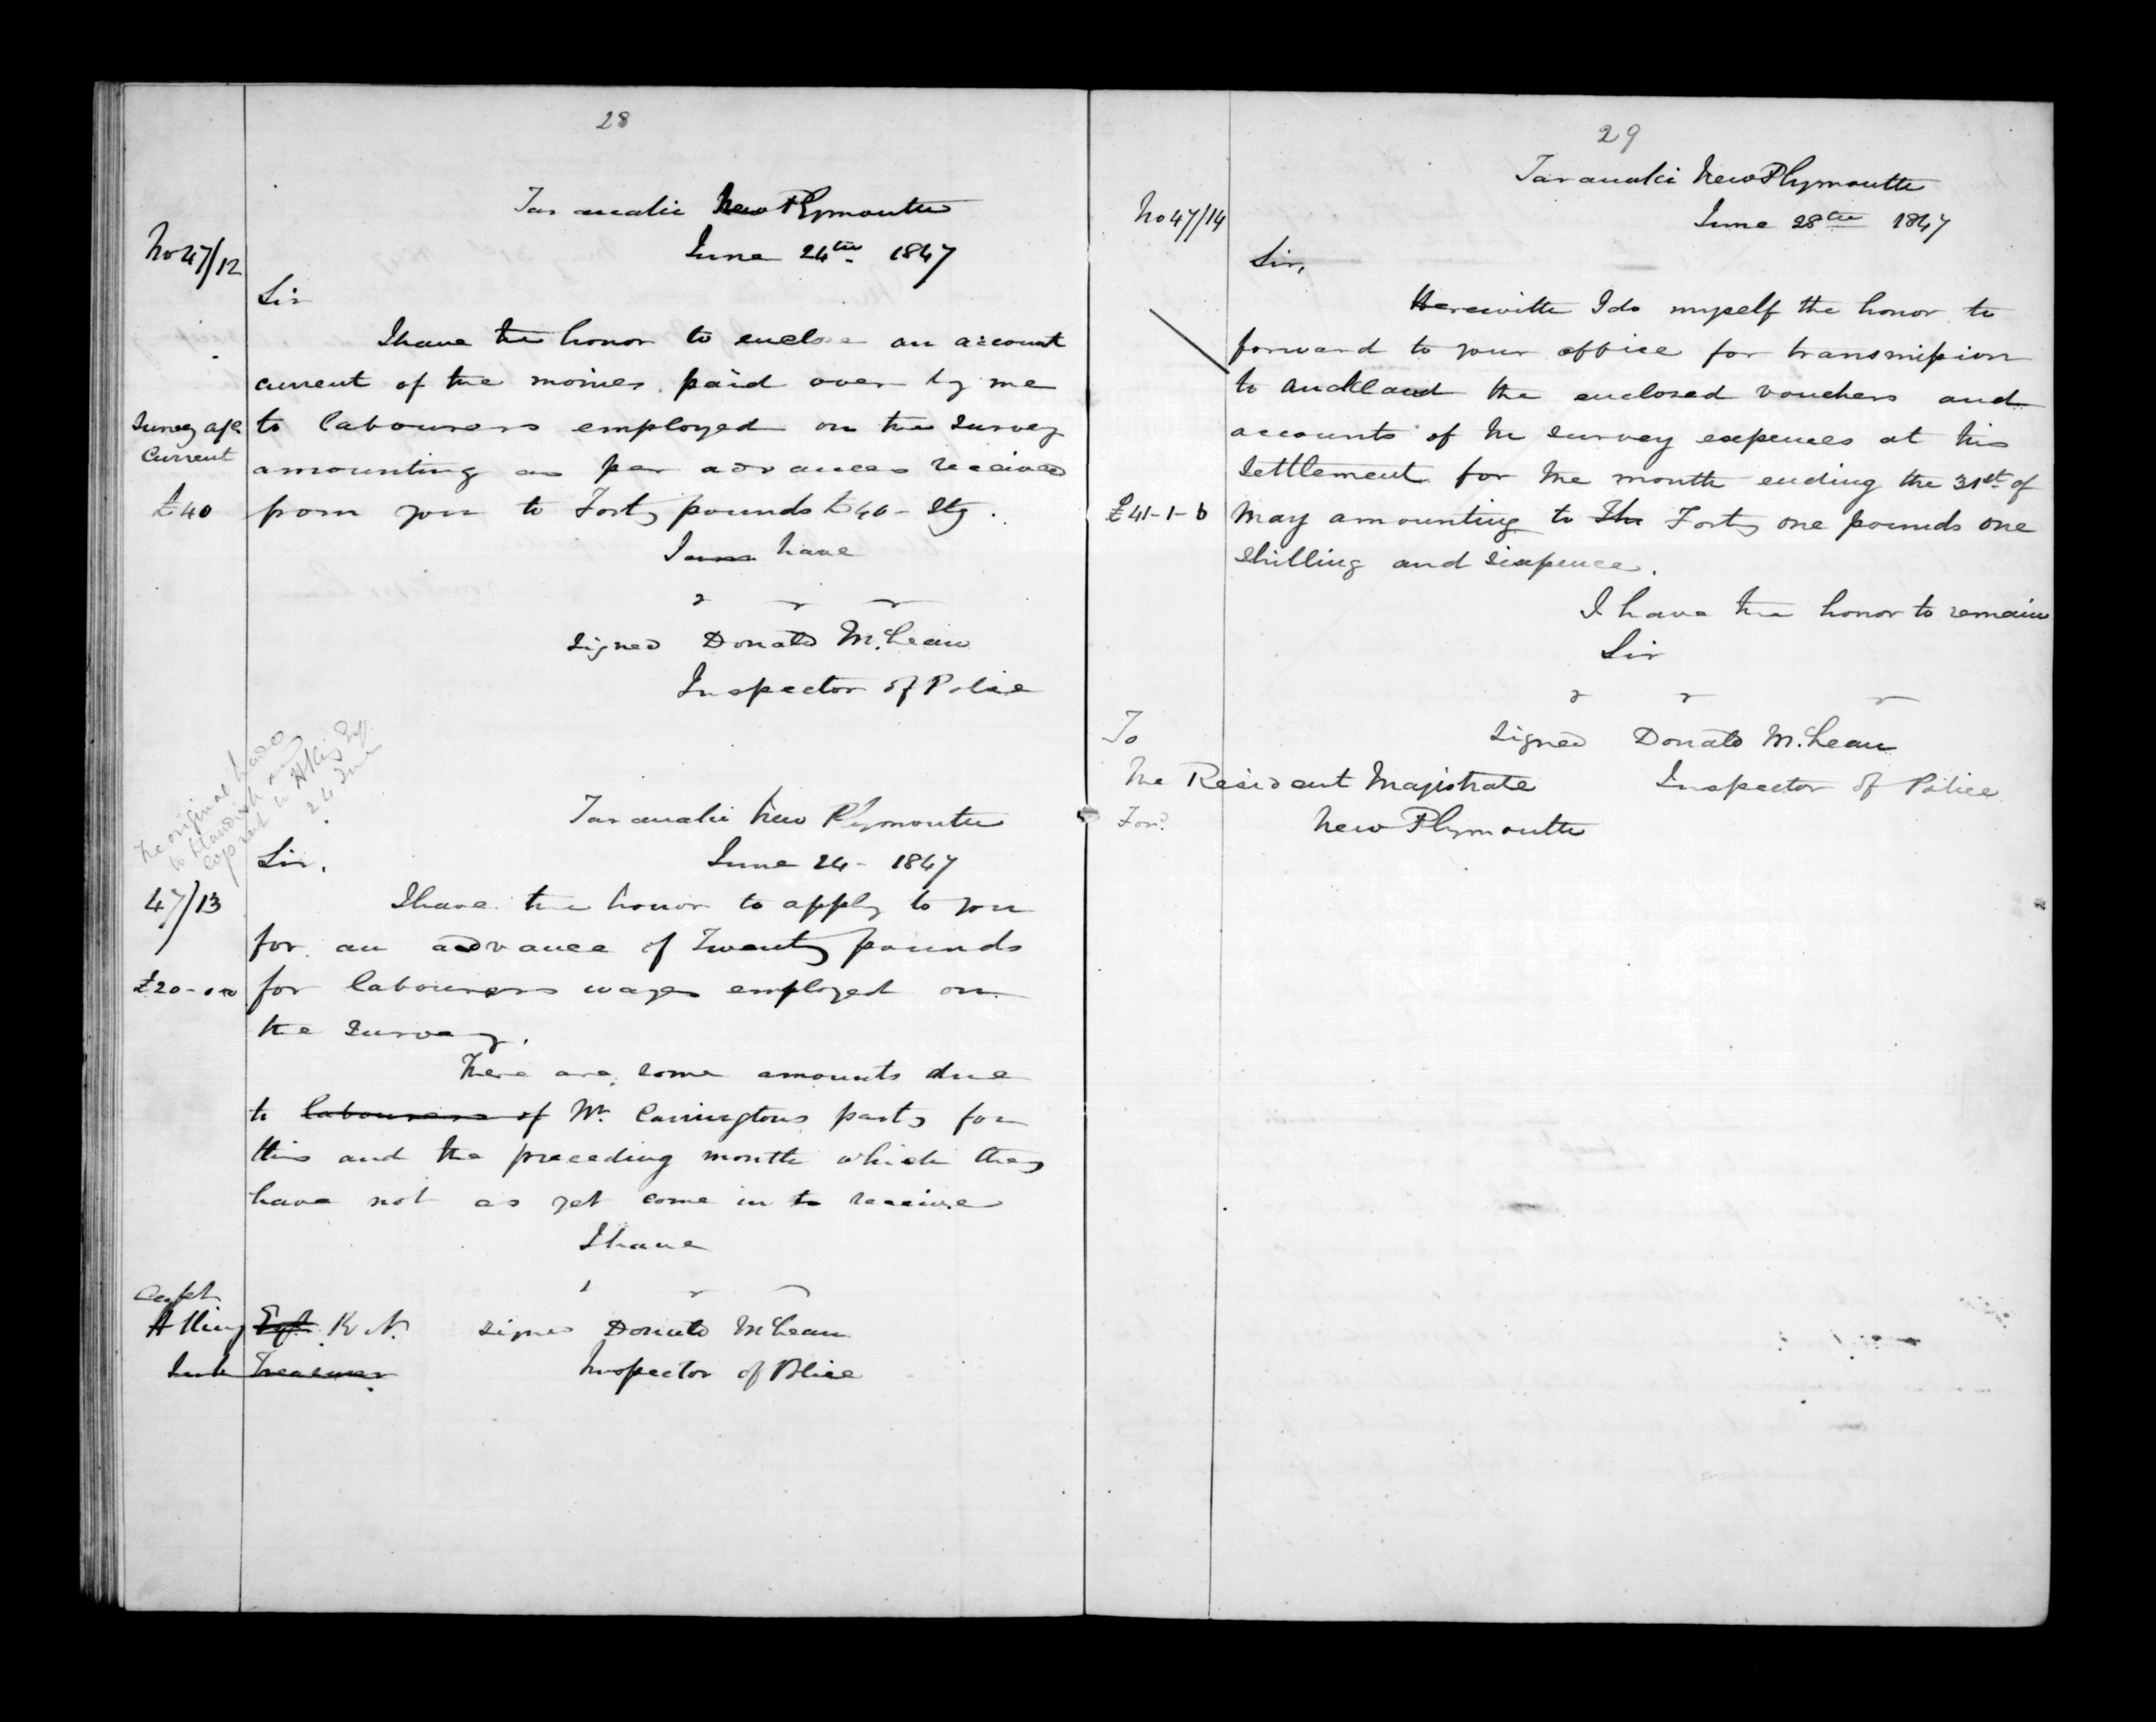 28
Taranaki New Plymouth
No 47/12
June 24th 1847
Sir
I have the honor to enclose an account
current of the monies paid over by me
Survey a/c to labourers employed on the Survey
Current
amounting as per advances received
£40 from you to Forty pounds £40- Stg.
I have
Signed Donald McLean
Inspector of Police
The original
24 June
Taranaki New Plymouth
Sir, June 24- 1847
47/13 I have the honor to apply to you
for an advance of Twenty pounds
£20-0-0 for labourers wages employed on
the Survey.
There are some amounts due
to labourers of Mr. Carringtons party for
this and the preceding month which they
have not as yet come in to receive
I have
Capt
King Esqr. R.N. Signed Donald McLean
Sub Treasurer Inspector of Police
29
Taranaki New Plymouth
No 47/14
June 28th 1847
Sir,
Herewith I do myself the honor to
forward to your office for transmission
to Auckland the enclosed vouchers and
accounts of the survey expences at this
Settlement for the month ending the 31st of
£41-1-6 May amounting to The Forty one pounds one
shilling and sixpence.
I have the honor to remain
Sir
To
Signed Donald McLean
The Resident Magistrate Inspector of Police
New Plymouth